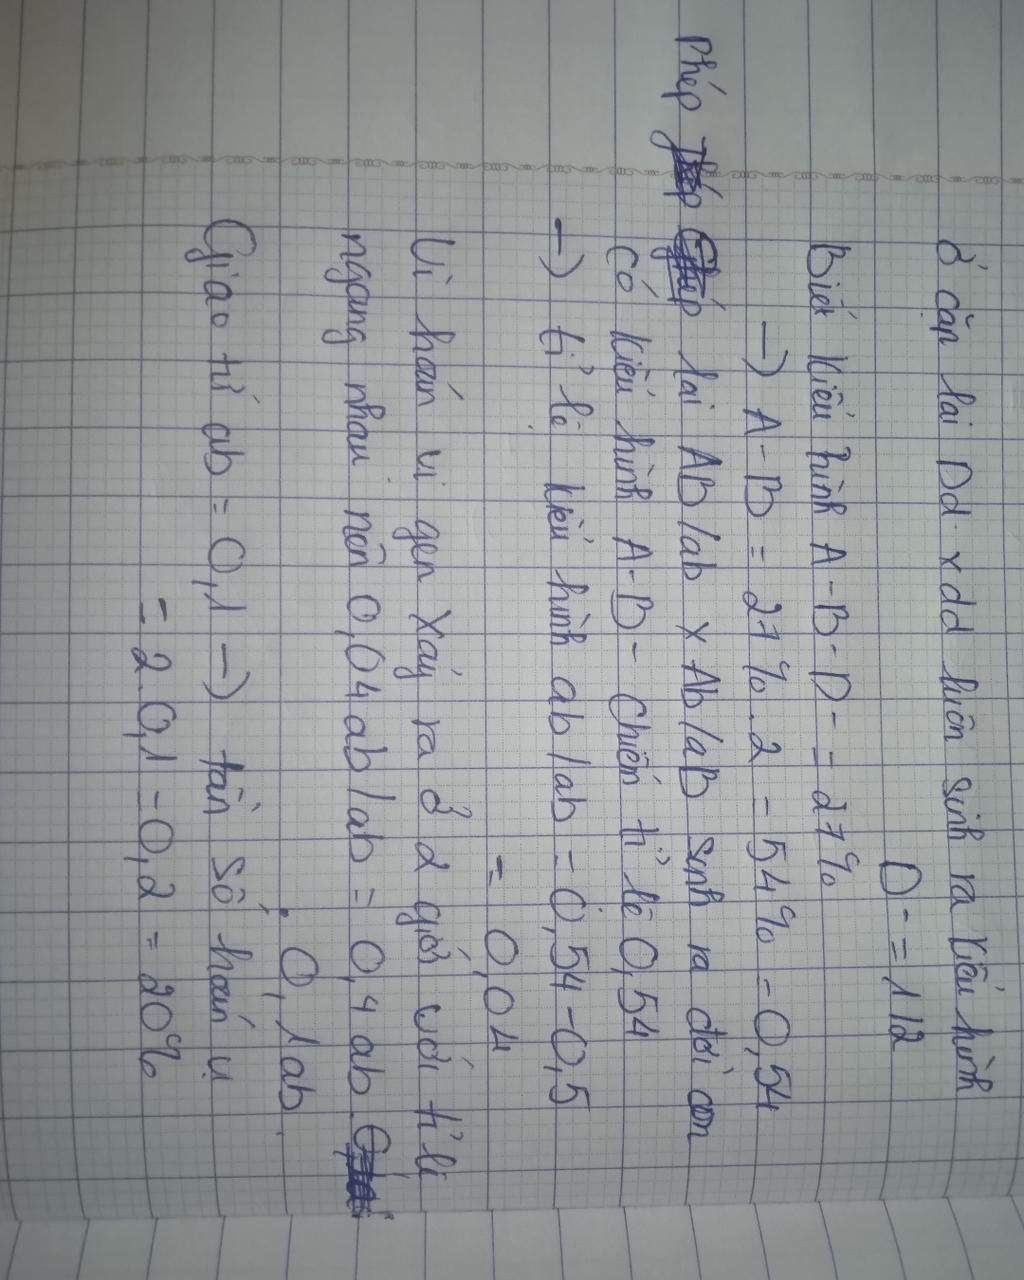 Ở cặp lai Dd x dd luôn sinh ra kiểu hình
D- = 1/2
Biết kiểu hình A-B-D- = 27%
→ A-B = 27%.2 = 54% = 0,54
Phép lai AB/ab x Ab/aB sinh ra đời con
có kiểu hình A-B- chiếm tỉ lệ 0,54
→ tỉ lệ kiểu hình ab/ab = 0,54-0,5
= 0,04
Vì hoán vị gen xảy ra ở 2 giới với tỉ lệ
ngang nhau nên 0,04 ab/ab = 0,4 ab.
0,1 ab.
Giao tử ab = 0,1 → tần số hoán vị
= 2.0,1 = 0,2 = 20%